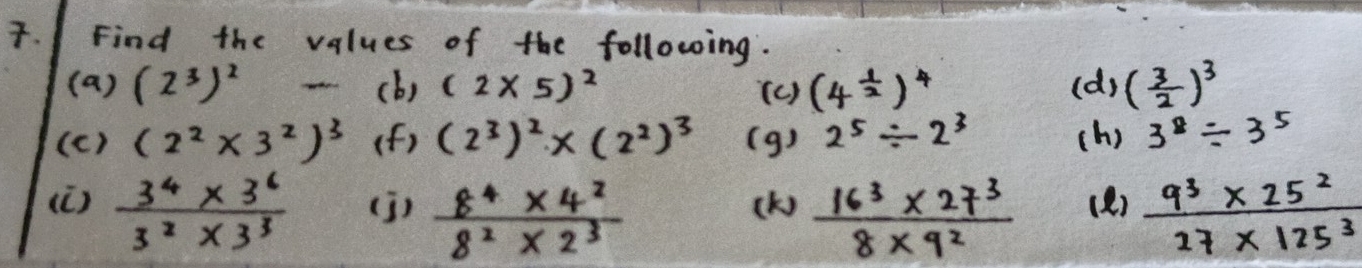 7. Find the values of the following.
(a) (2³)² — (b) (2 × 5)² (c) (4^½)⁴ (d) (3/2)³
(e) (2² × 3²)³ (f) (2³)² × (2²)³ (g) 2⁵ ÷ 2³ (h) 3⁸ ÷ 3⁵
(i) (3⁴ × 3⁶)/(3² × 3³) (j) (8⁴ × 4²)/(8² × 2³) (k) (16³ × 27³)/(8 × 9²) (l) (9³ × 25²)/(27 × 125³)